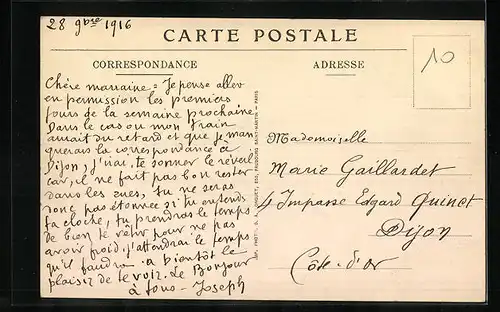 28 9bre 1916
CARTE POSTALE
CORRESPONDANCE
ADRESSE
10
Chère marraine = Je pense aller
en permission les premiers
jours de la semaine prochaine.
Dans le cas ou mon train
aurait du retard et que je man
querais la correspondance à
Dijon, j'irai te sonner le réveil
car, il ne fait pas bon rester
dans les rues, tu ne seras
donc pas étonnée si tu entends
ta cloche, tu prendras le temps
de bien te vêtir pour ne pas
avoir froid, j'attendrai le temps
qu'il faudra. a bientôt le
plaisir de te voir. Le Bonjour
à tous - Joseph
Mademoiselle
Marie Gaillardet
4 Impasse Edgard Quinet
Dijon
Côte-d'or